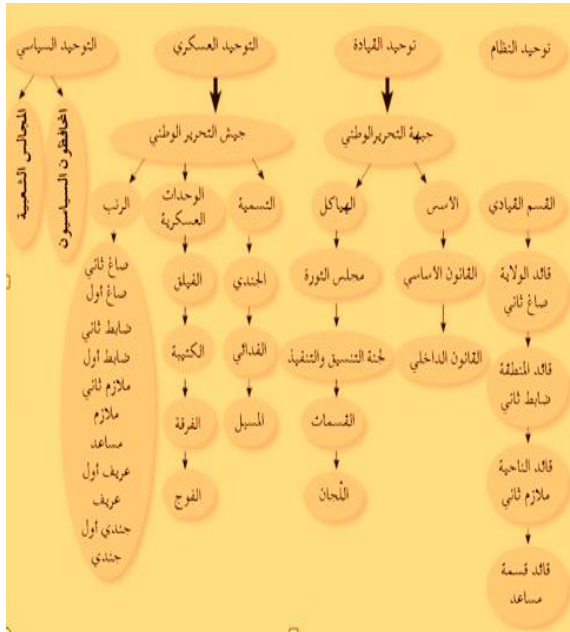 توحيد النظام
القسم القيادي
قائد الولاية
صاغ ثاني
قائد المنطقة
ضابط ثاني
قائد الناحية
ملازم ثاني
قائد قسمة
مساعد
توحيد القيادة
جبهة التحرير الوطني
الأسس
القانون الأساسي
القانون الداخلي
الهياكل
مجلس الثورة
لجنة التنسيق والتنفيذ
القسمات
اللّجان
التوحيد العسكري
جيش التحرير الوطني
التسمية
الجندي
الفدائي
المسبل
الوحدات
العسكرية
الفيلق
الكتيبة
الفرقة
الفوج
الرتب
صاغ ثاني
صاغ أول
ضابط ثاني
ضابط أول
ملازم ثاني
ملازم
مساعد
عريف أول
عريف
جندي أول
جندي
التوحيد السياسي
المحافظون السياسيون
المجالس الشعبية